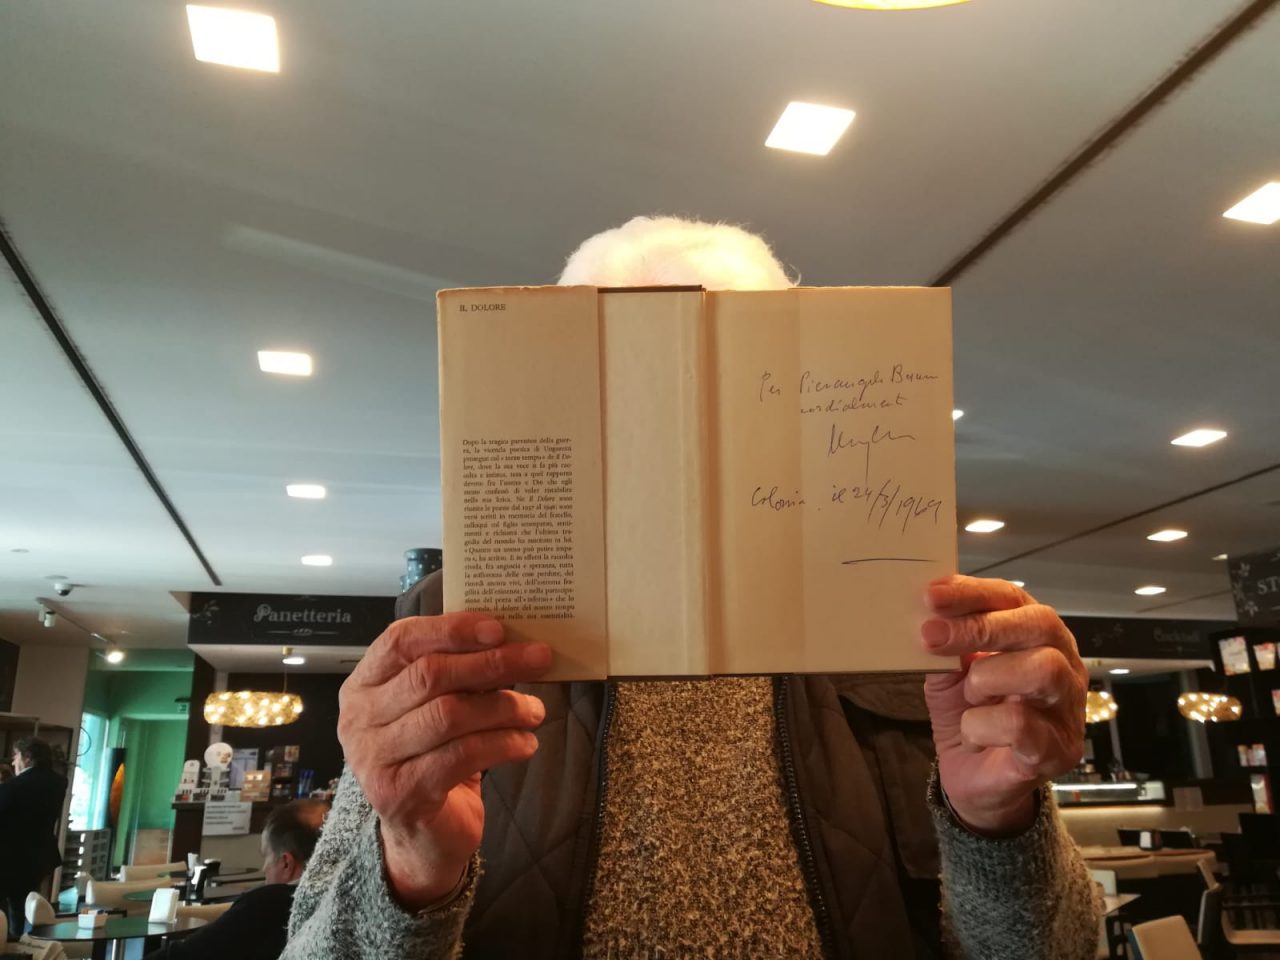 IL DOLORE
Dopo la tragica parentesi della guer-
ra, la vicenda poetica di Ungaretti
prosegue col « terzo tempo » de Il Do-
lore, dove la sua voce si fa più rac-
colta e intima, tesa a quel rapporto
devoto fra l'uomo e Dio che egli
stesso confessò di voler ristabilire
nella sua lirica. Ne Il Dolore sono
riunite le poesie dal 1937 al 1946: sono
versi scritti in memoria del fratello,
colloqui col figlio scomparso, senti-
menti e richiami che l'ultima tra-
gedia del mondo ha suscitato in lui.
« Quanto un uomo può patire impa-
ra », ha scritto. E in effetti la raccolta
rivela, fra angoscia e speranza, tutta
la sofferenza delle cose perdute, dei
ricordi ancora vivi, dell'estrema fra-
gilità dell'esistenza; e nella partecipa-
zione del poeta all'« inferno » che lo
circonda, il dolore del nostro tempo
qui nella sua essenzialità.
Per Pierangelo
cordialmente
il 24/3/1969
Panetteria
Cocktail
ST